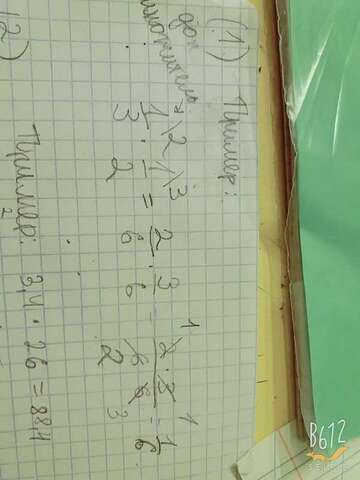 (1.) Пример:
доп
множитель
1\2 1\3
1/3 · 1/2 = 2/6 · 3/6 = 2·3/6·6 = 1/6
1 1
2 3
(2)
Пример: 3,4 · 26 = 88,4
2
B612